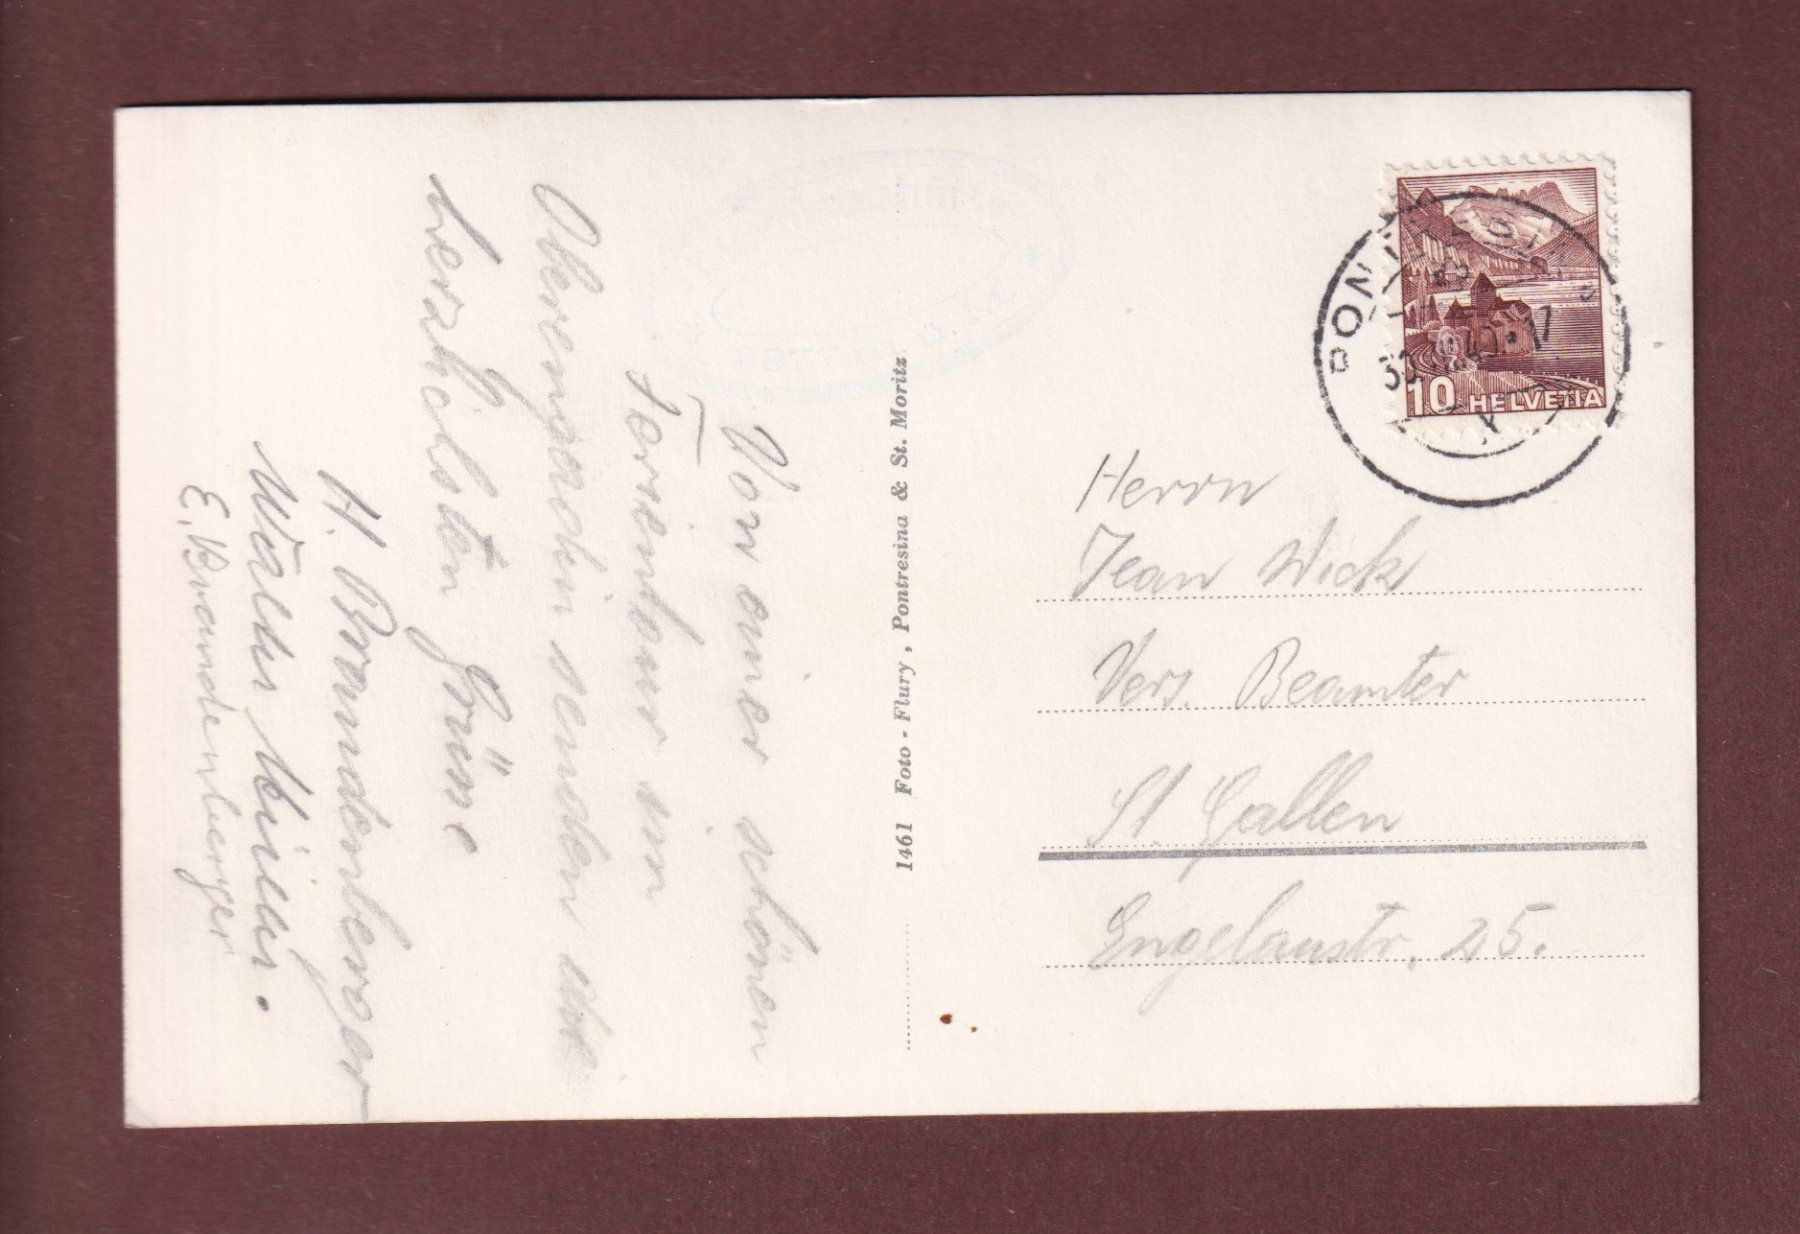 Von einer schönen
Ferientour im
Oberengadin senden die
herzlichsten Grüsse
H. Brandenberger
Walter
E. Brandenberger
1461 Foto - Flury, Pontresina & St. Moritz
10 HELVETIA
PONTRESINA
Herrn
Jean Wick
Vers. Beamter
St. Gallen